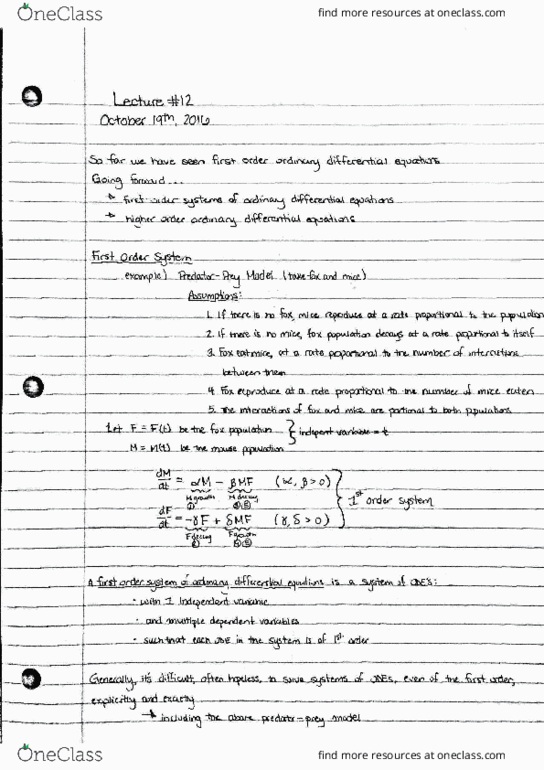 OneClass
find more resources at oneclass.com
Lecture #12
October 19th, 2016
So far we have seen first order ordinary differential equations
Going forward...
→ first order systems of ordinary differential equations
→ higher order ordinary differential equations
First Order System
example) Predator-Prey Model (take fox and mice)
Assumptions:
1. If there is no fox, mice reproduce at a rate proportional to the population
2. If there is no mice, fox population decays at a rate proportional to itself
3. Fox eat mice, at a rate proportional to the number of interactions
between them
4. Fox reproduce at a rate proportional to the number of mice eaten
5. The interactions of fox and mice are portional to both populations
Let F = F(t) be the fox population } indepent variable = t
M = M(t) be the mouse population
dM/dt = αM - βMF (α, β > 0)
M growth M decay
} 1st order system
dF/dt = -γF + δMF (γ, δ > 0)
F decay F growth
A first order system of ordinary differential equations is a system of ODE's:
• with 1 independent variable
• and multiple dependent variables
• such that each ODE in the system is of 1st order
Generally, it's difficult, often hopeless, to solve systems of ODEs, even of the first order,
explicitly and exactly
→ including the above predator-prey model
OneClass
find more resources at oneclass.com